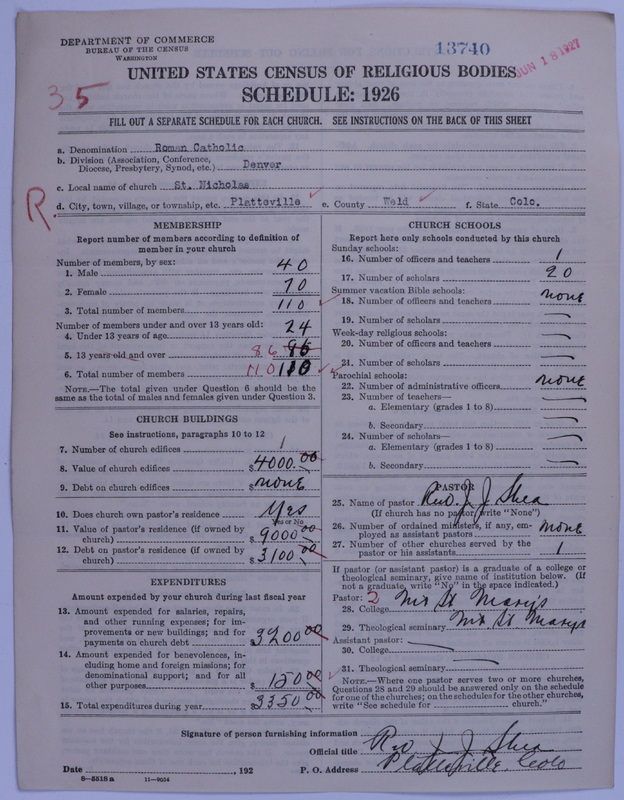 DEPARTMENT OF COMMERCE
BUREAU OF THE CENSUS
WASHINGTON
13740
JUN 18 1927
UNITED STATES CENSUS OF RELIGIOUS BODIES
SCHEDULE: 1926
35
FILL OUT A SEPARATE SCHEDULE FOR EACH CHURCH. SEE INSTRUCTIONS ON THE BACK OF THIS SHEET
a. Denomination Roman Catholic
b. Division (Association, Conference,
Diocese, Presbytery, Synod, etc.) Denver
c. Local name of church St. Nicholas
R.
d. City, town, village, or township, etc. Platteville e. County Weld f. State Colo.
MEMBERSHIP
Report number of members according to definition of
member in your church
Number of members, by sex:
1. Male 40
2. Female 70
3. Total number of members 110
Number of members under and over 13 years old:
4. Under 13 years of age 24
5. 13 years old and over 86
6. Total number of members 110 110
NOTE.—The total given under Question 6 should be the
same as the total of males and females given under Question 3.
CHURCH BUILDINGS
See instructions, paragraphs 10 to 12
7. Number of church edifices 1
8. Value of church edifices $4000.00
9. Debt on church edifices $none
10. Does church own pastor's residence? Yes
Yes or No
11. Value of pastor's residence (if owned by
church) $9000 00
12. Debt on pastor's residence (if owned by
church) $3100 00
EXPENDITURES
Amount expended by your church during last fiscal year
13. Amount expended for salaries, repairs,
and other running expenses; for im-
provements or new buildings; and for
payments on church debt $3200 00
14. Amount expended for benevolences, in-
cluding home and foreign missions; for
denominational support; and for all
other purposes $150 00
15. Total expenditures during year $3350 00
CHURCH SCHOOLS
Report here only schools conducted by this church
Sunday schools:
16. Number of officers and teachers 1
17. Number of scholars 20
Summer vacation Bible schools:
18. Number of officers and teachers none
19. Number of scholars —
Week-day religious schools:
20. Number of officers and teachers —
21. Number of scholars —
Parochial schools:
22. Number of administrative officers none
23. Number of teachers—
a. Elementary (grades 1 to 8) —
b. Secondary —
24. Number of scholars—
a. Elementary (grades 1 to 8) —
b. Secondary —
PASTOR
25. Name of pastor Rev. J. J. Shea
(If church has no pastor, write "None")
26. Number of ordained ministers, if any, em-
ployed as assistant pastors none
27. Number of other churches served by the
pastor or his assistants 1
If pastor (or assistant pastor) is a graduate of a college or
theological seminary, give name of institution below. (If
not a graduate, write "No" in the space indicated.)
Pastor: 2
28. College Mt St Mary's
29. Theological seminary Mt. St Mary's
Assistant pastor:
30. College —
31. Theological seminary —
NOTE.—Where one pastor serves two or more churches,
Questions 28 and 29 should be answered only on the schedule
for one of the churches; on the schedules for the other churches,
write "See schedule for church."
Signature of person furnishing information Rev J. J. Shea
Official title
Date , 192 P. O. Address Platteville Colo
8—5518a 11—9054